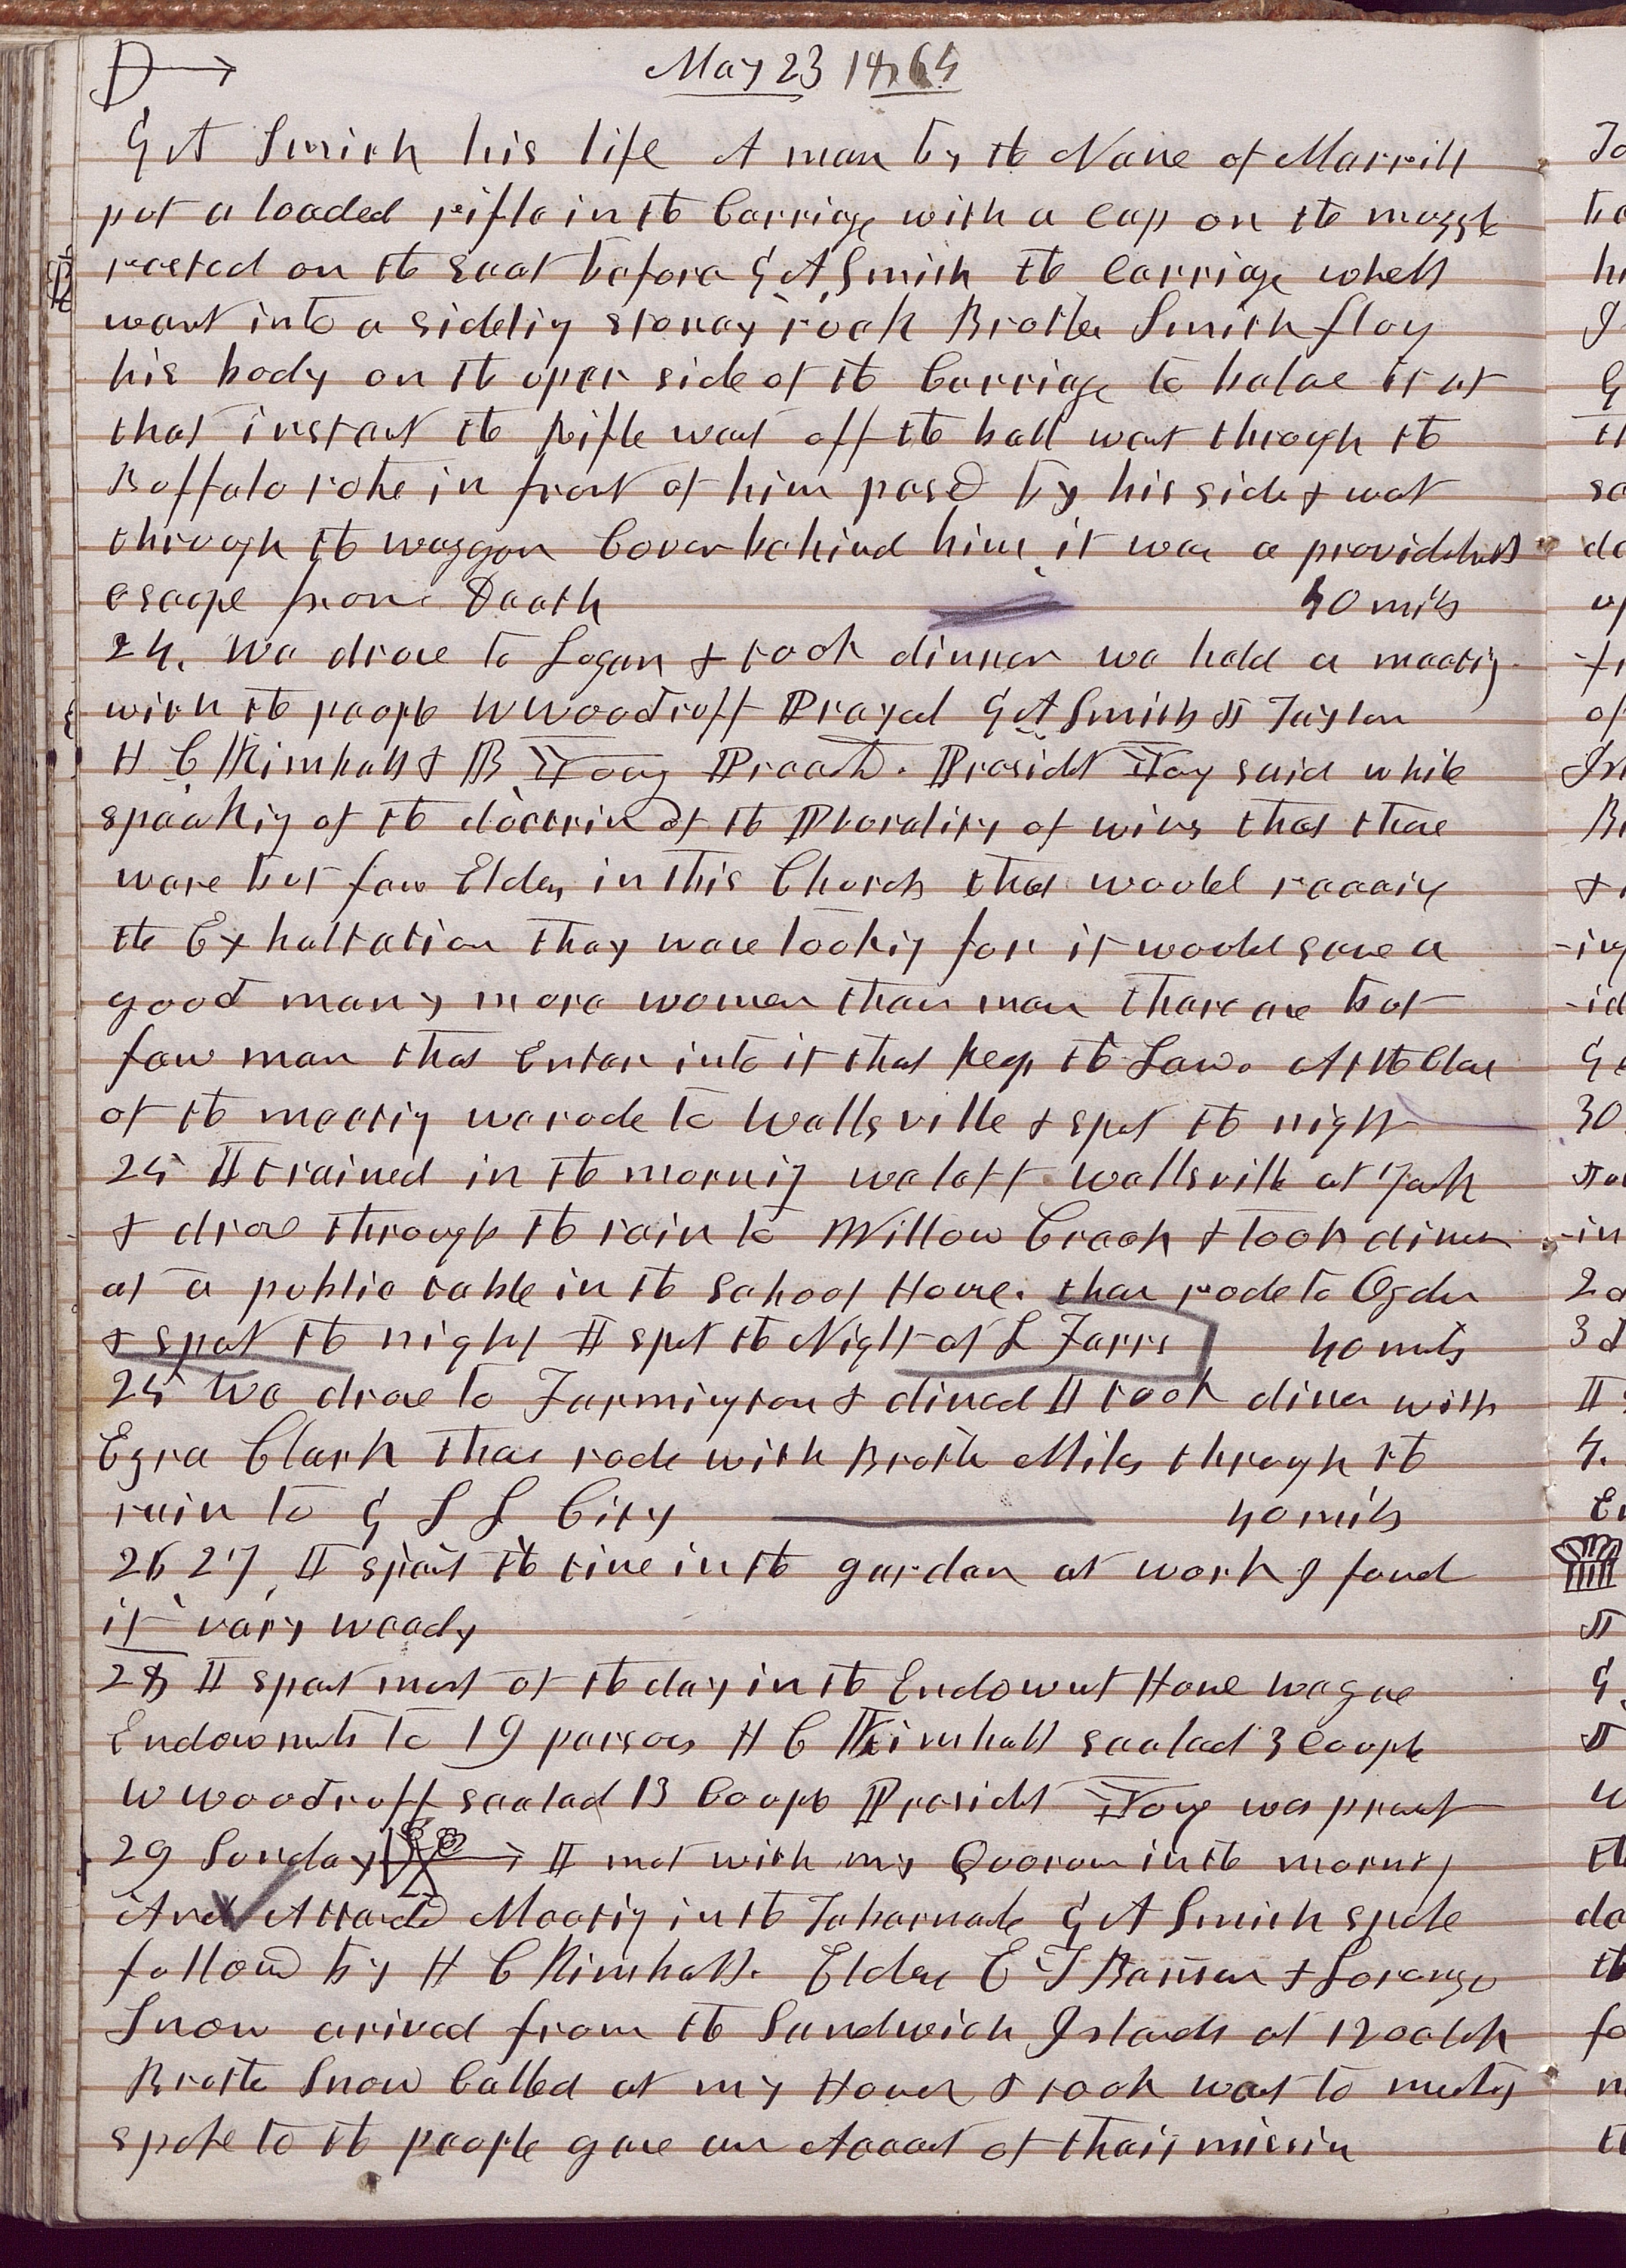 May 23 1864
G A Smith his life A man by the Name of Marrill
put a loaded rifle in the Carriage with a cap on the muzzle
rested on the seat before G A Smith the carriage wheels
went into a sideling stoney rock Brother Smith flog
his body on the uper side of the Carriage to balae it at
that instant the Rifle went off the ball went through the
Buffalo robe in front of him pased by his side & wet
through the waggon Cover behind him it was a providential
escape from Death 40 mils
24. We drove to Logan & took dinner we held a meetig
with the people W Woodruff Prayed G A Smith J Taylor
H C Kimball & B Young Preachd. Presidet Yong said while
speakig of the doctrin of the Plurality of wivs that thare
ware but few Elders in this Church that would receive
the Exhaltation they ware lookig for it would save a
good many more women than men thare are but
few men that Enter into it that keep the Law. At the Close
of the meetig we rode to Wellsville & spet the night
25 It rained in the mornig we left Wellsville at 7 oclk
& drove through the rain to Willow Creek & took diner
at a public table in the School House. then rode to Ogden
& spet the night I spet the Night at L Farrs 40 mils
25 We drove to Farmington & dined I took diner with
Ezra Clark then rode with Brother Miles through the
rain to G S L City 40 mils
26 27, I spent the time in the garden at work I found
it very weedy
28 I spent most of the day in the Endowment House we gave
Endowmets to 19 persons H C Kimball sealed 3 couple
W Woodruff sealed 13 Couple Presidet Yong was preset
29 Sunday I met with my Quorum in the mornig
And Attended Meetig in the Tabernacle G A Smith spoke
followed by H C Kimball. Elders E T Benson & Lorenzo
Snow arived from the Sandwich Islands at 12 oclok
Brother Snow Called at my House & took went to meeting
spoke to the people gave an Account of their mission